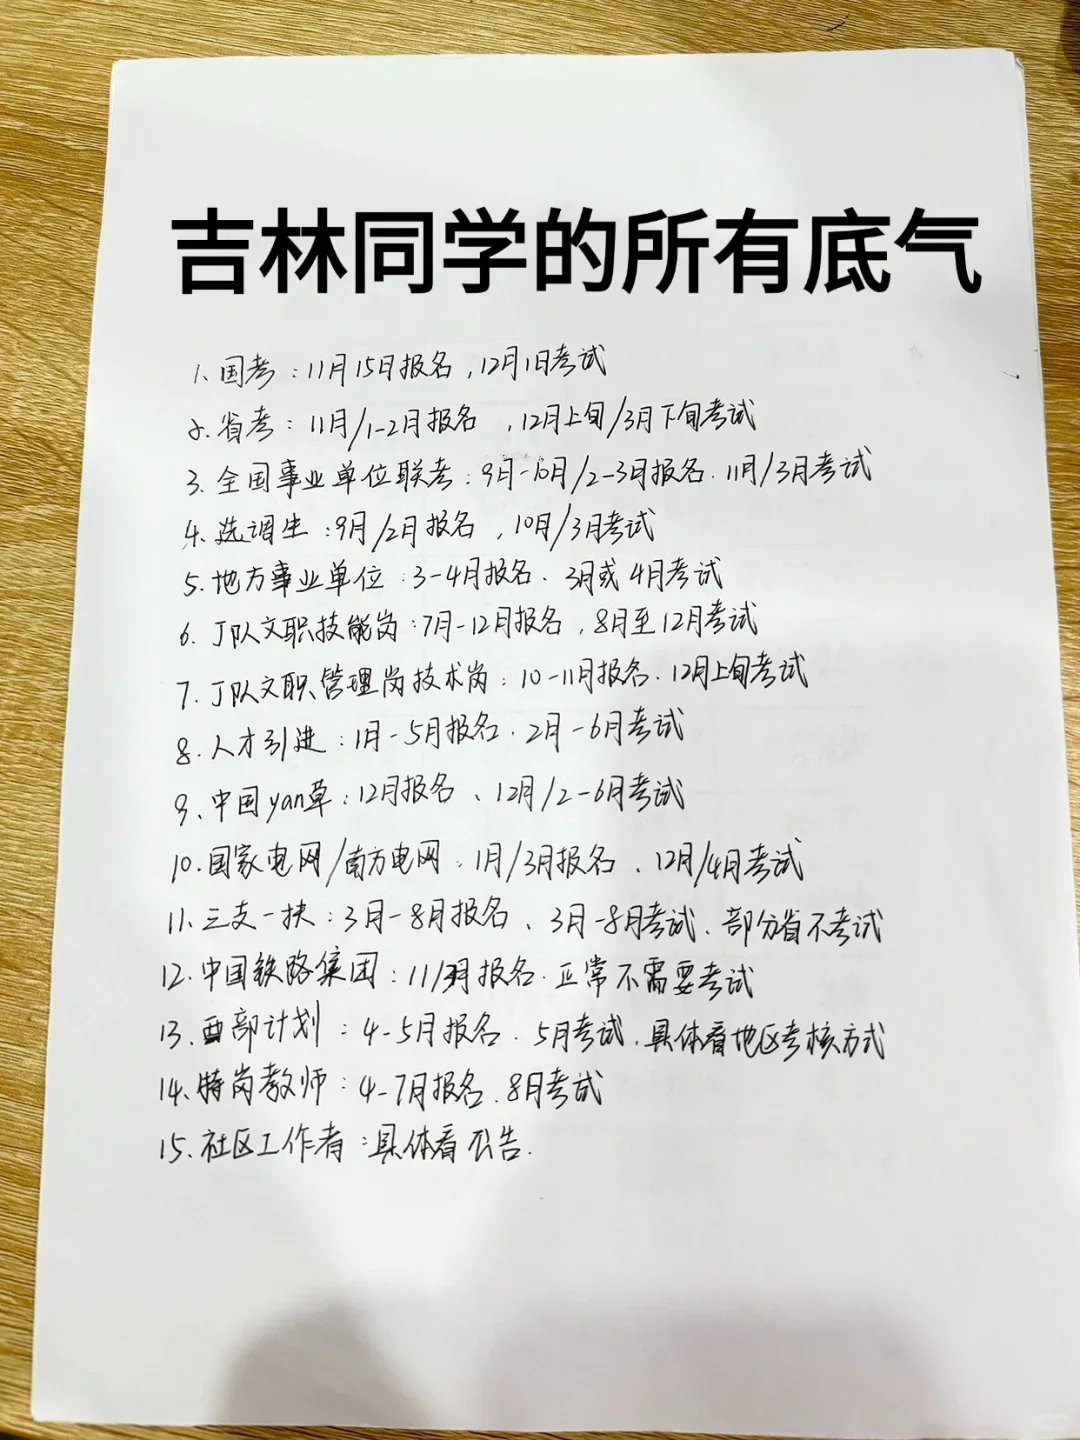 吉林同学的所有底气
1、国考：11月15日报名，12月1日考试
2、省考：11月/1-2月报名，12月上旬/3月下旬考试
3、全国事业单位联考：9月-10月/2-3月报名、11月/3月考试
4、选调生：9月/2月报名，10月/3月考试
5、地方事业单位：3-4月报名、3月或4月考试
6、J队文职技能岗：7月-12月报名，8月至12月考试
7、J队文职管理岗技术岗：10-11月报名、12月上旬考试
8、人才引进：1月-5月报名、2月-6月考试
9、中国yan草：12月报名、12月/2-6月考试
10、国家电网/南方电网：1月/3月报名、12月/4月考试
11、三支一扶：3月-8月报名、3月-8月考试、部分省不考试
12、中国铁路集团：11/3月报名、正常不需要考试
13、西部计划：4-5月报名、5月考试、具体看地区考核方式
14、特岗教师：4-7月报名、8月考试
15、社区工作者：具体看公告.